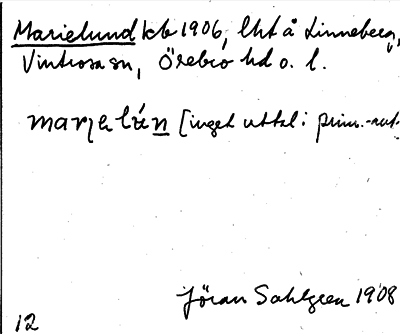 Marielund kb 1906, lht å Linneberg,
Vintrosa sn, Örebro hd o. l.
[inget uttal i prim.-
Jöran Sahlgren 1908
12